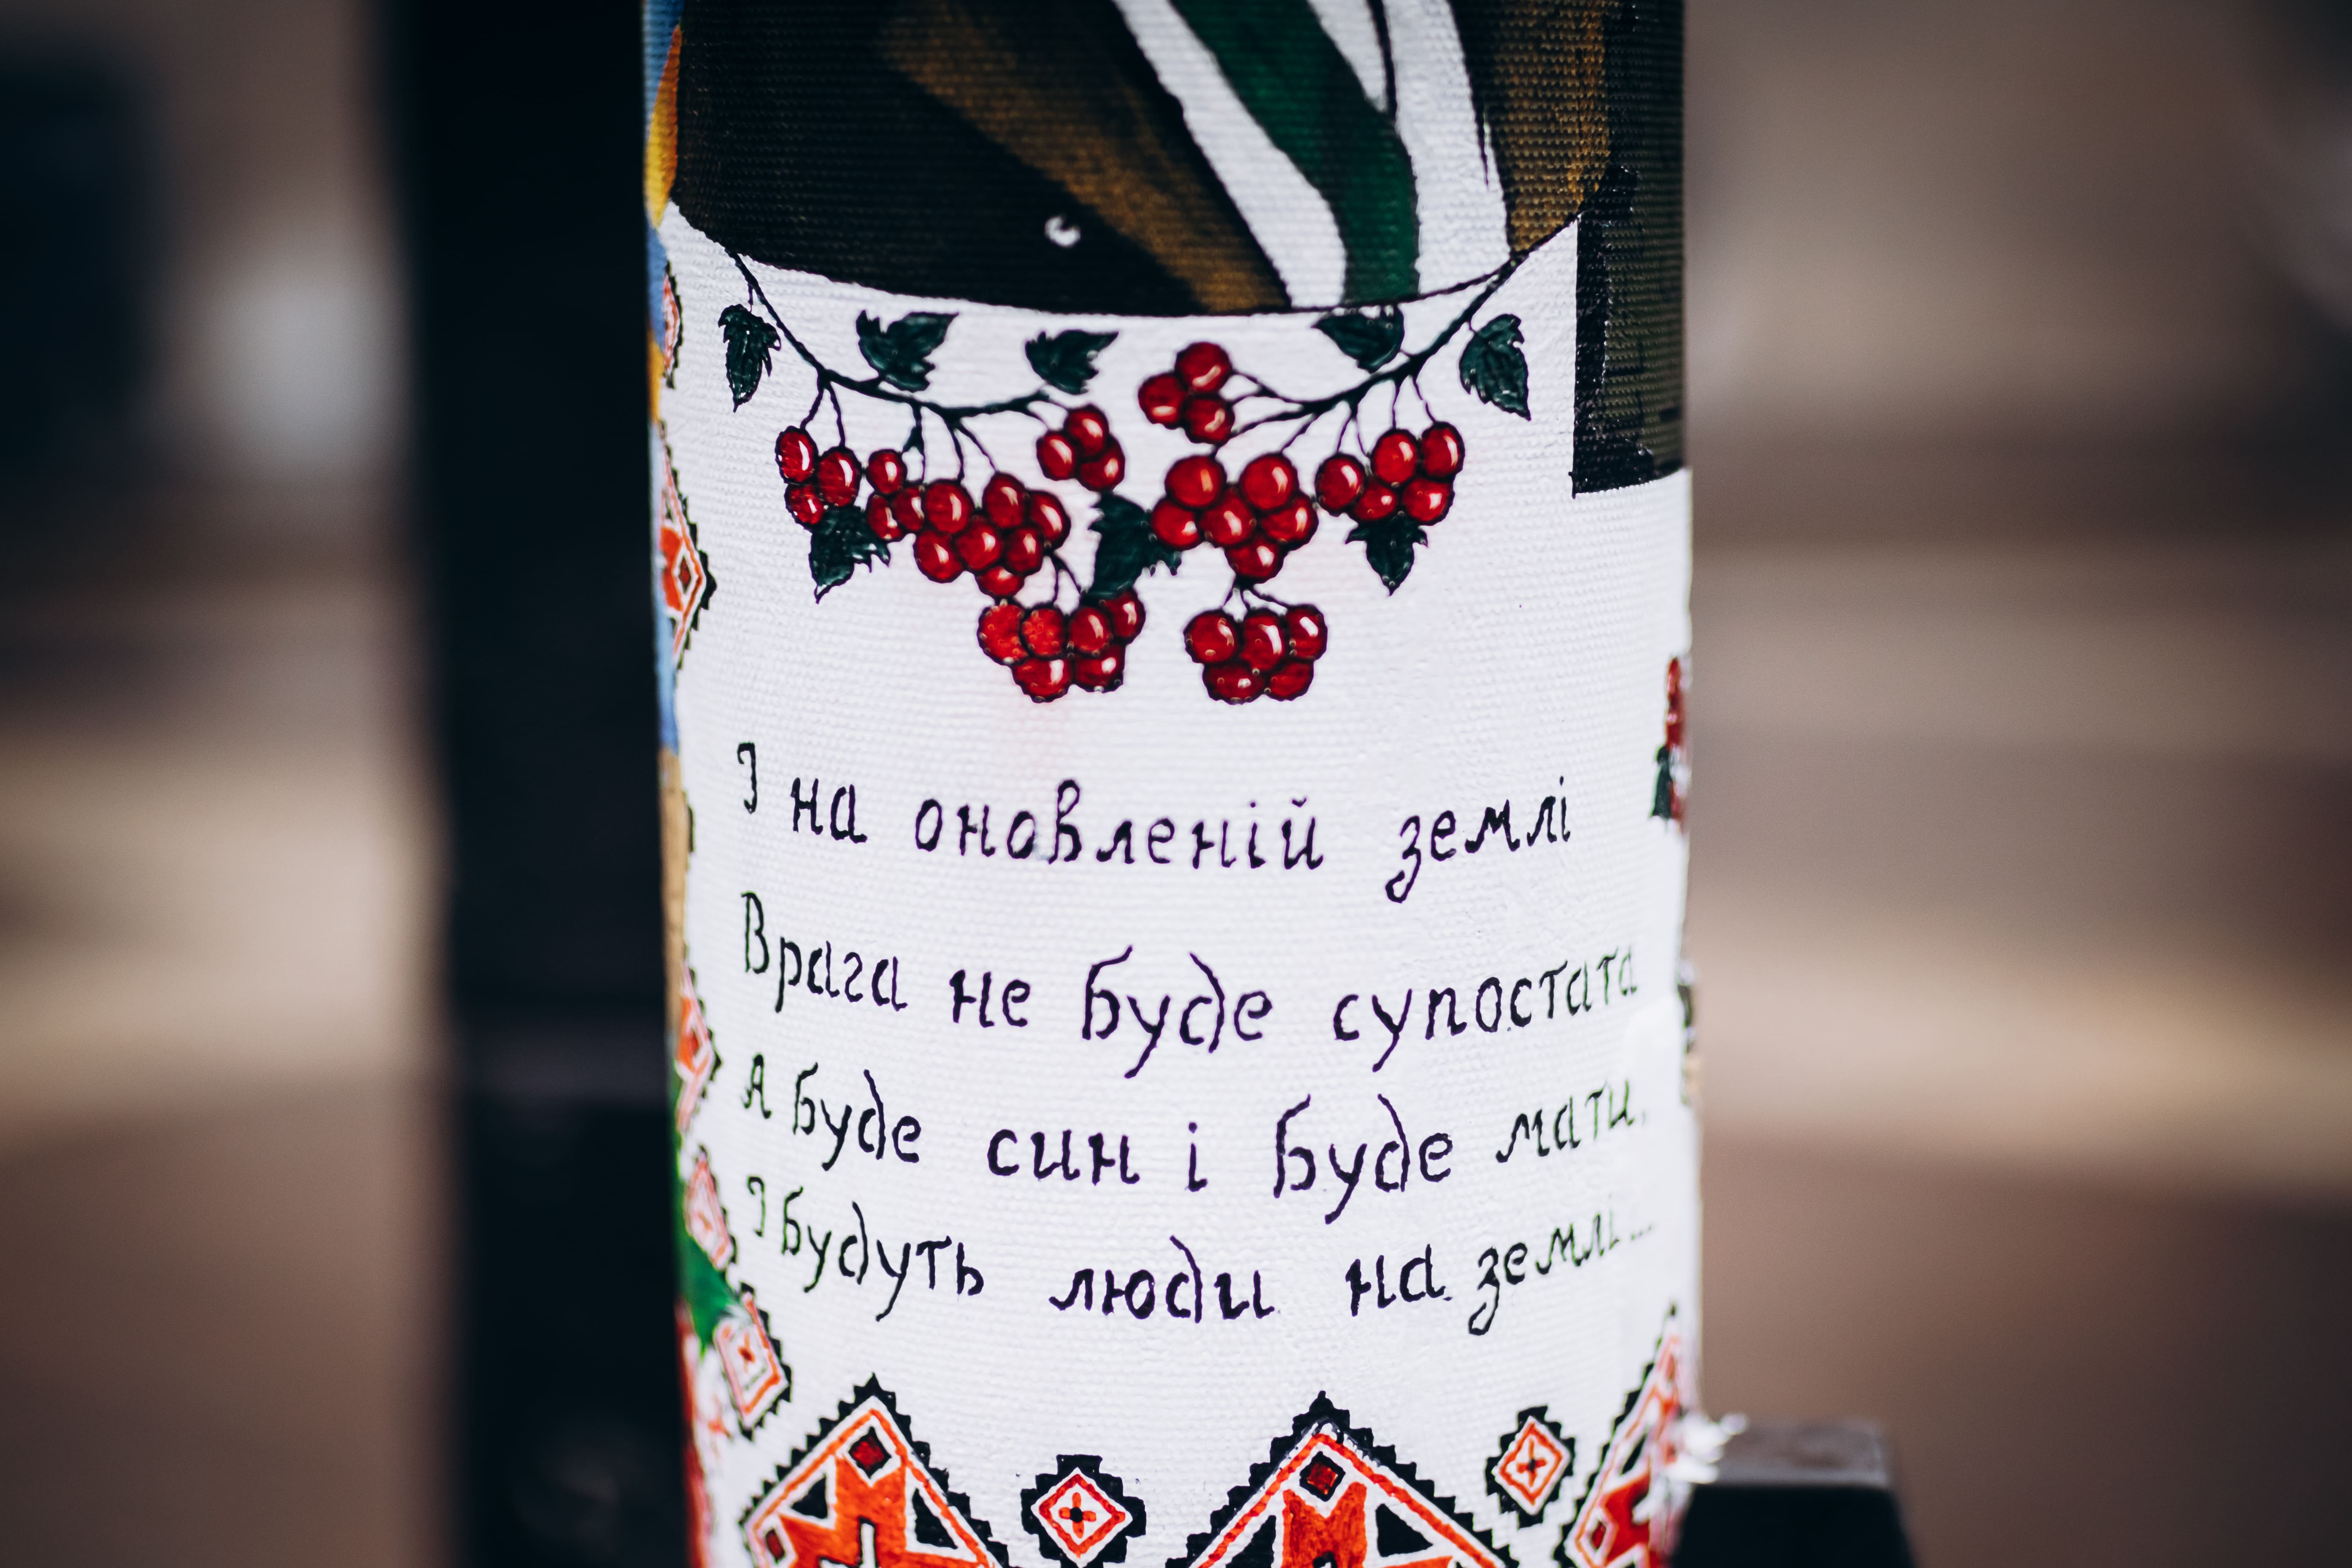 І на оновленій землі
Врага не буде супостата
А буде син і буде мати.
І будуть люди на землі...